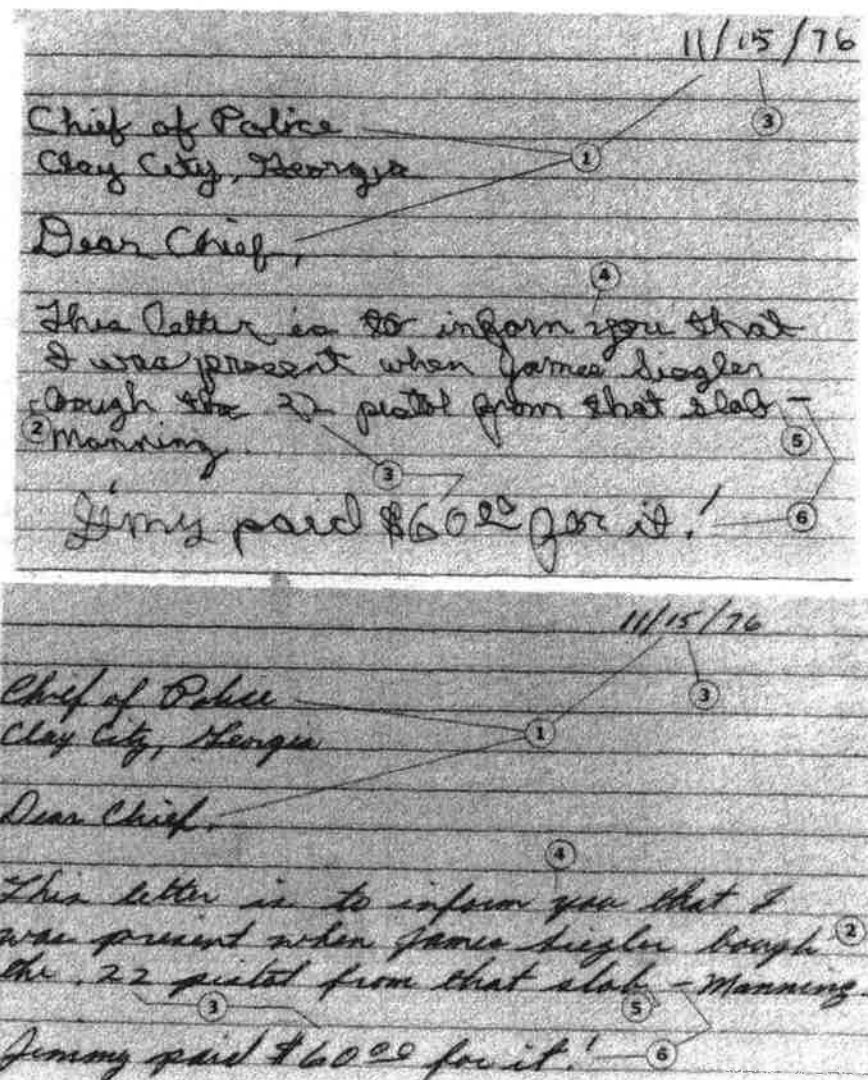 11/15/76
3
Chief of Police
1
Clay City, Georgia
Dear Chief,
4
This letter is to inform you that
I was present when James Siegler
bough the 22 pistol from that slob -
2
5
Manning.
3
Jimy paid $60.00 for it!
6
11/15/76
3
Chief of Police
1
Clay City, Georgia
Dear Chief,
4
This letter is to inform you that I
2
was present when James Siegler bough
the .22 pistol from that slob - Manning.
3
5
Jimmy paid $60.00 for it!
6